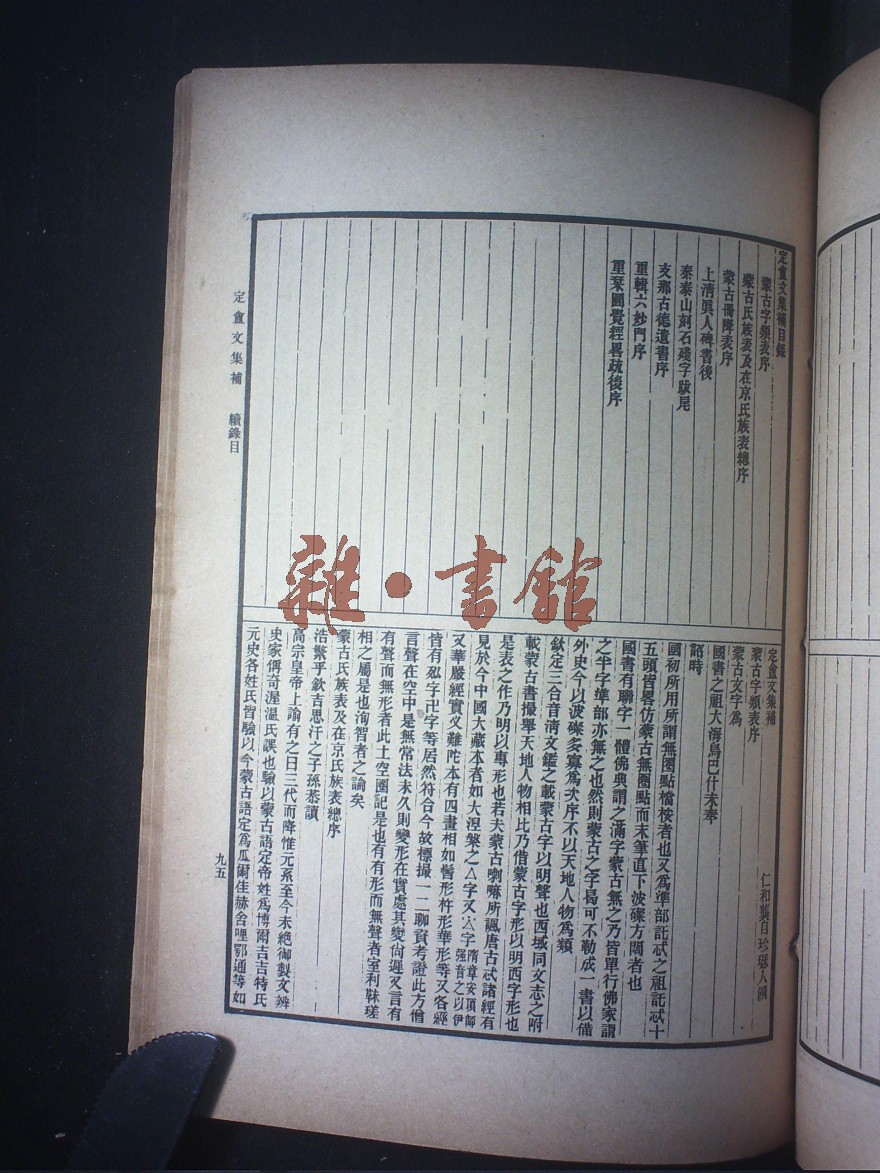 定盦文集補目錄
蒙古字類表序
蒙古氏族表及在京氏族表總序
蒙古冊降表序
上清眞人碑書後
秦泰山刻石殘字跋尾
支那古德遺書序
重輯六妙門序
重栞圓覺經畧疏後序
定盦文集補
仁和龔自珍璱人譔
蒙古字類表序
蒙古文字爲
國書之祖大海烏巴什未奉
詔時
國初所用所謂無圈點檔桉者也又爲準部託忒之祖託忒十
五頭皆畧仿蒙古無圈點而末筆直下波磔方闊者也
國書有聯字一體佛典謂之滿字蒙古無之乃皆單行佛家謂
之半字準部亦無之也然則蒙古之字曷可不勒成一書以備
外史今以波磔多寡爲次序不以天地人物爲類
欽定三合音淸文鑑之載蒙古字以明聲也西域同文志之附
載蒙古書撮舉天地人物相比乃借蒙古字形以明西字形也
是表之作乃明以專形也若夫蒙古喇嘛所諷唐古忒諸經有
見於今中國大藏本者如大涅槃之△字又∴字隋章安頂師強音之以伊
又華嚴經實义難陀本有四畫相如髻形杵形華形等又各經
皆有𢀖字卍字等居然符合今故標撮一二聊資考證此方僧
言聲在空中是無常法未久則變形在實處其變尙遲又言有
有聲而無形者此土空圈記是也有有形而無聲者室利靺瑳
相之屬是也洵智者之論矣
蒙古氏族表及在京氏族表總序
浩繁乎欽吉思汗之子孫恭讀
高宗皇帝上諭有之日三代而降惟元系至今未絶御製文辨
史家傳奇渥溫氏誤也驗以蒙古語定帝姓爲博爾吉吉特氏
元史各姓氏皆驗以今蒙古語定爲瓜爾佳赫舍哩鄂通等如
定盦文集補 續錄目
九五
雜·書館